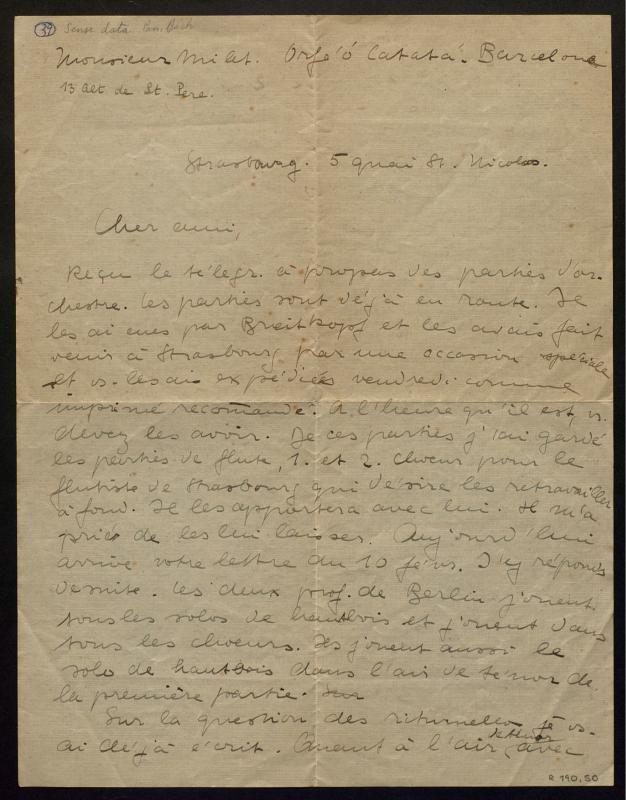 39 Sense data Pas. Bach
Monsieur Milet. Orfeó Catatá. Barcelone
13 Alt de St. Pere.
Strasbourg. 5 quai St. Nicolas.
Cher ami,
Reçu le télegr. à propos des parties d'or-
chestre. Les parties sont déjà en route. Je
les ai eues par Breitkopf et les avais fait
venir à Strasbourg par une occasion spéciale
et vs. les ais expédiées vendredi comme
imprimé recommandé. A l'heure qu'il est, vs.
devez les avoir. De ces parties j'ai gardé
les parties de flute, 1. et 2. choeur pour le
flutiste de Strasbourg qui désire les retravailler
à fond. Il les apportera avec lui. Il m'a
prié de les lui laisser. Aujourd'hui
arrive votre lettre du 10 févr. J'y réponds
desuite. Les deux prof. de Berlin jouent
tous les solos de hautbois et jouent dans
tous les choeurs. Ils jouent aussi le
solo de hautbois dans l'air de ténor de
la première partie.
Sur la question des riturnelles je vs.
ai déjà écrit. Quant à l'air avec
R 190,50